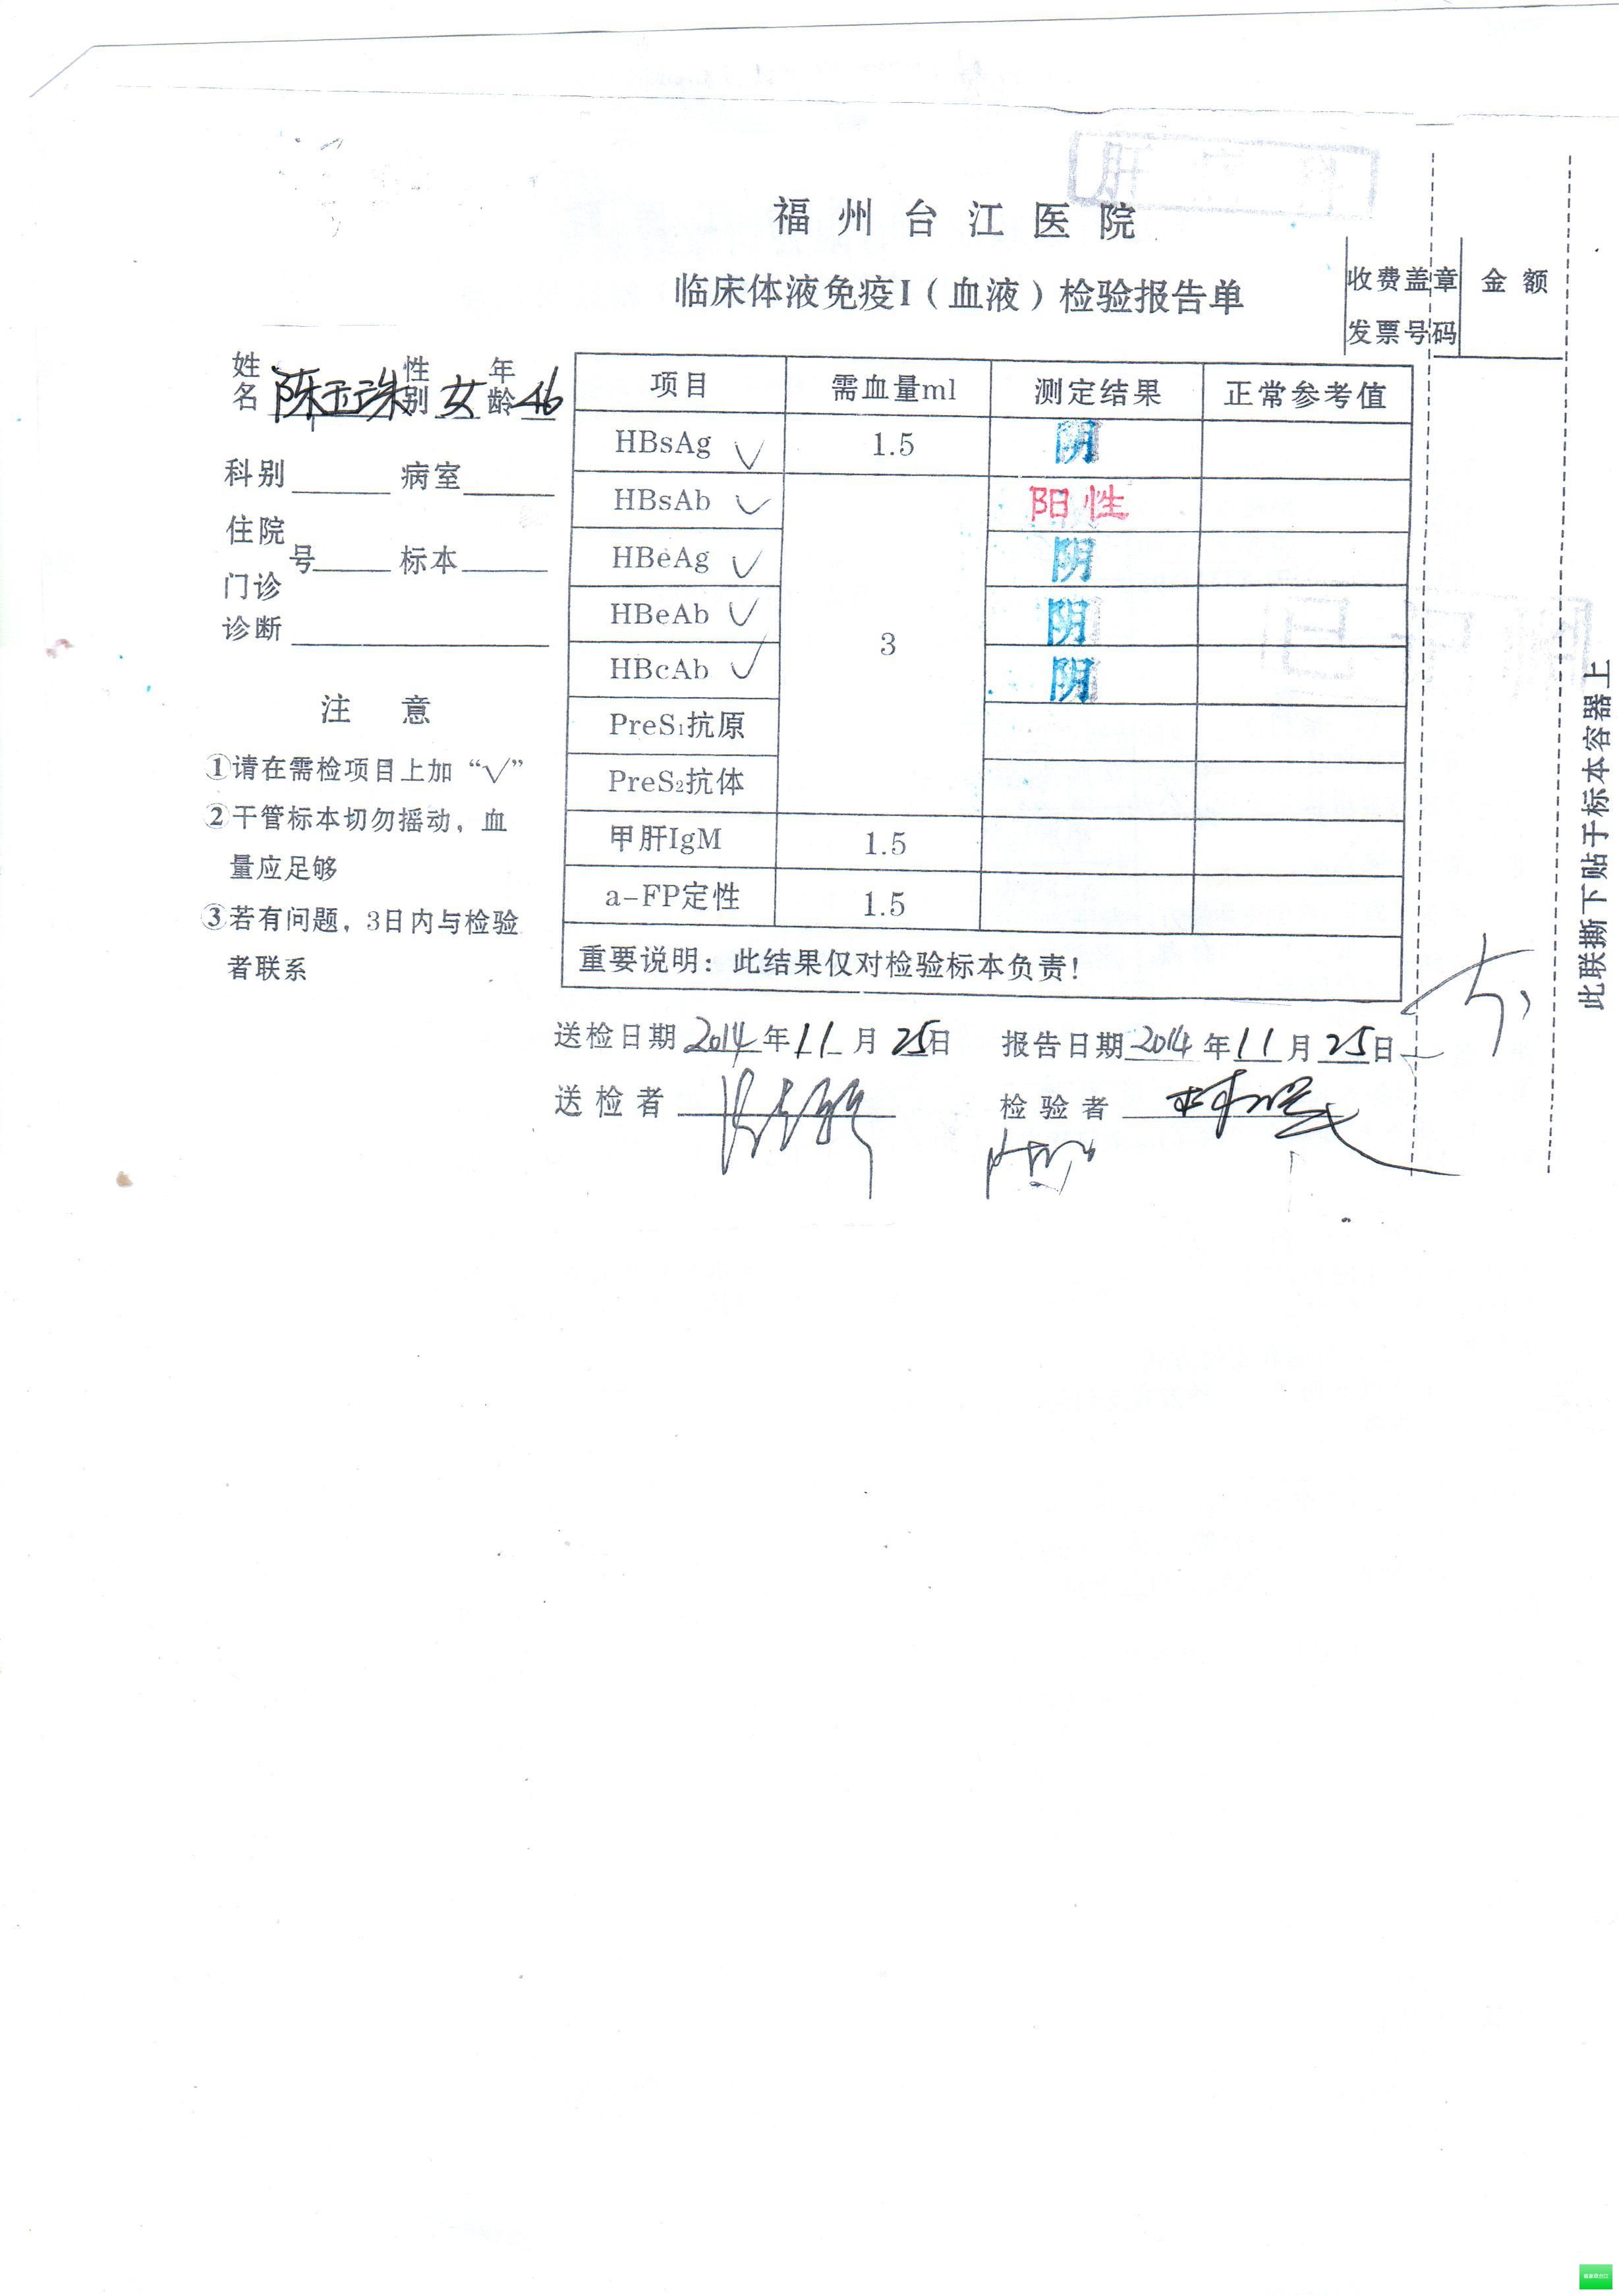 福州台江医院
临床体液免疫I（血液）检验报告单
收费盖章 金额
发票号码
姓名 陈玉珠 性别 女 年龄 46
科别 病室
住院号 标本
门诊
诊断
注 意
①请在需检项目上加“√”
②干管标本切勿摇动，血
量应足够
③若有问题，3日内与检验
者联系
项目 需血量ml 测定结果 正常参考值
HBsAg √ 1.5 阴
HBsAb √ 3 阳性
HBeAg √ 阴
HBeAb √ 阴
HBcAb √ 阴
PreS₁抗原
PreS₂抗体
甲肝IgM 1.5
a-FP定性 1.5
重要说明：此结果仅对检验标本负责！
送检日期 2014 年 11 月 25 日 报告日期 2014 年 11 月 25 日
送检者 检验者
此联撕下贴于标本容器上